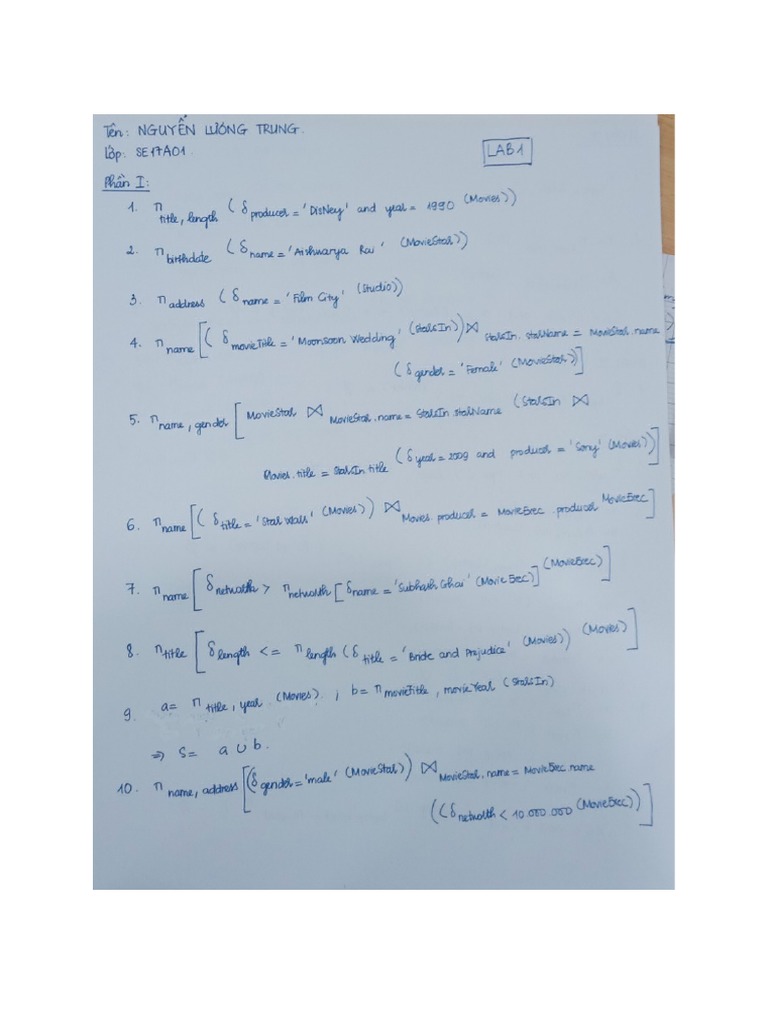 Tên: NGUYỄN LƯƠNG TRUNG.
Lớp: SE17A01.
LAB1
Phần I:
1. π title, length (δ producer = 'DisNey' and year = 1990 (Movies))
2. π birthdate (δ name = 'Aishwarya Rai' (MovieStar))
3. π address (δ name = 'Film City' (Studio))
4. π name [(δ movieTitle = 'Moonsoon Wedding' (StarsIn)) ⋈ StarsIn.starName = MovieStar.name
(δ gender = 'Female' (MovieStar))]
5. π name, gender [MovieStar ⋈ MovieStar.name = StarsIn.starName (StarsIn ⋈
Movies.title = StarsIn.title (δ year = 2009 and producer = 'Sony' (Movies))]
6. π name [(δ title = 'Star Wars' (Movies)) ⋈ Movies.producer = MovieExec.producer MovieExec]
7. π name [δ networth > π networth [δ name = 'Subhash Ghai' (MovieExec)] (MovieExec)]
8. π title [δ length <= π length (δ title = 'Bride and Prejudice' (Movies)) (Movies)]
9. a = π title, year (Movies). ; b = π movieTitle, movieYear (StarsIn)
⇒ S = a ∪ b.
10. π name, address [(δ gender = 'male' (MovieStar)) ⋈ MovieStar.name = MovieExec.name
((δ networth < 10.000.000 (MovieExec))]